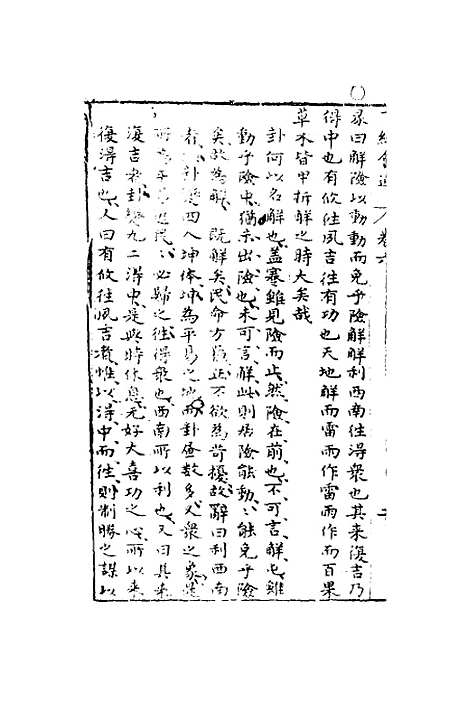 彖曰解險以動動而免乎險解解利西南往得衆也其來復吉乃
得中也有攸往夙吉往有功也天地解而雷雨作雷雨作而百果
草木皆甲拆解之時大矣哉
卦何以名解也蓋蹇雖見險而止然險在前也不可言解屯雖
動乎險中猶未出險也未可言解此則居險能動〻能免乎險
矣故為解既解矣民命方不欲為苛擾故辭曰利西南
者卦變四入坤体坤為平易之地而卦晝数多人衆之象是
所為平易近民〻必歸之往得衆也西南所以利也又曰其來
復吉者卦變九二得中是與時休息无好大喜功之心所以來
復得吉也又曰有攸往夙吉者惟以得中而往則制勝之謀以